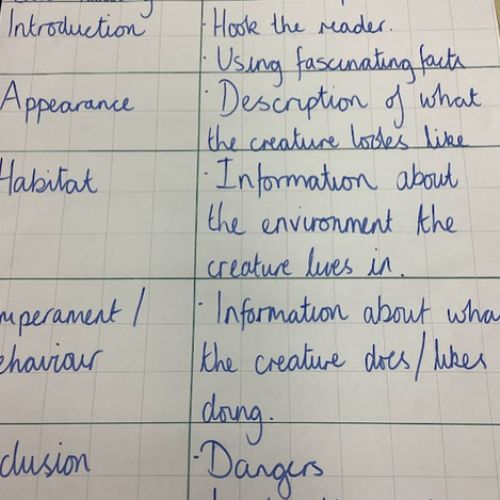 Introduction · Hook the reader.
· Using fascinating facts
Appearance · Description of what
the creature looks like
Habitat · Information about
the environment the
creature lives in.
mperament / · Information about wha
ehaviour the creature does/likes
doing.
clusion · Dangers